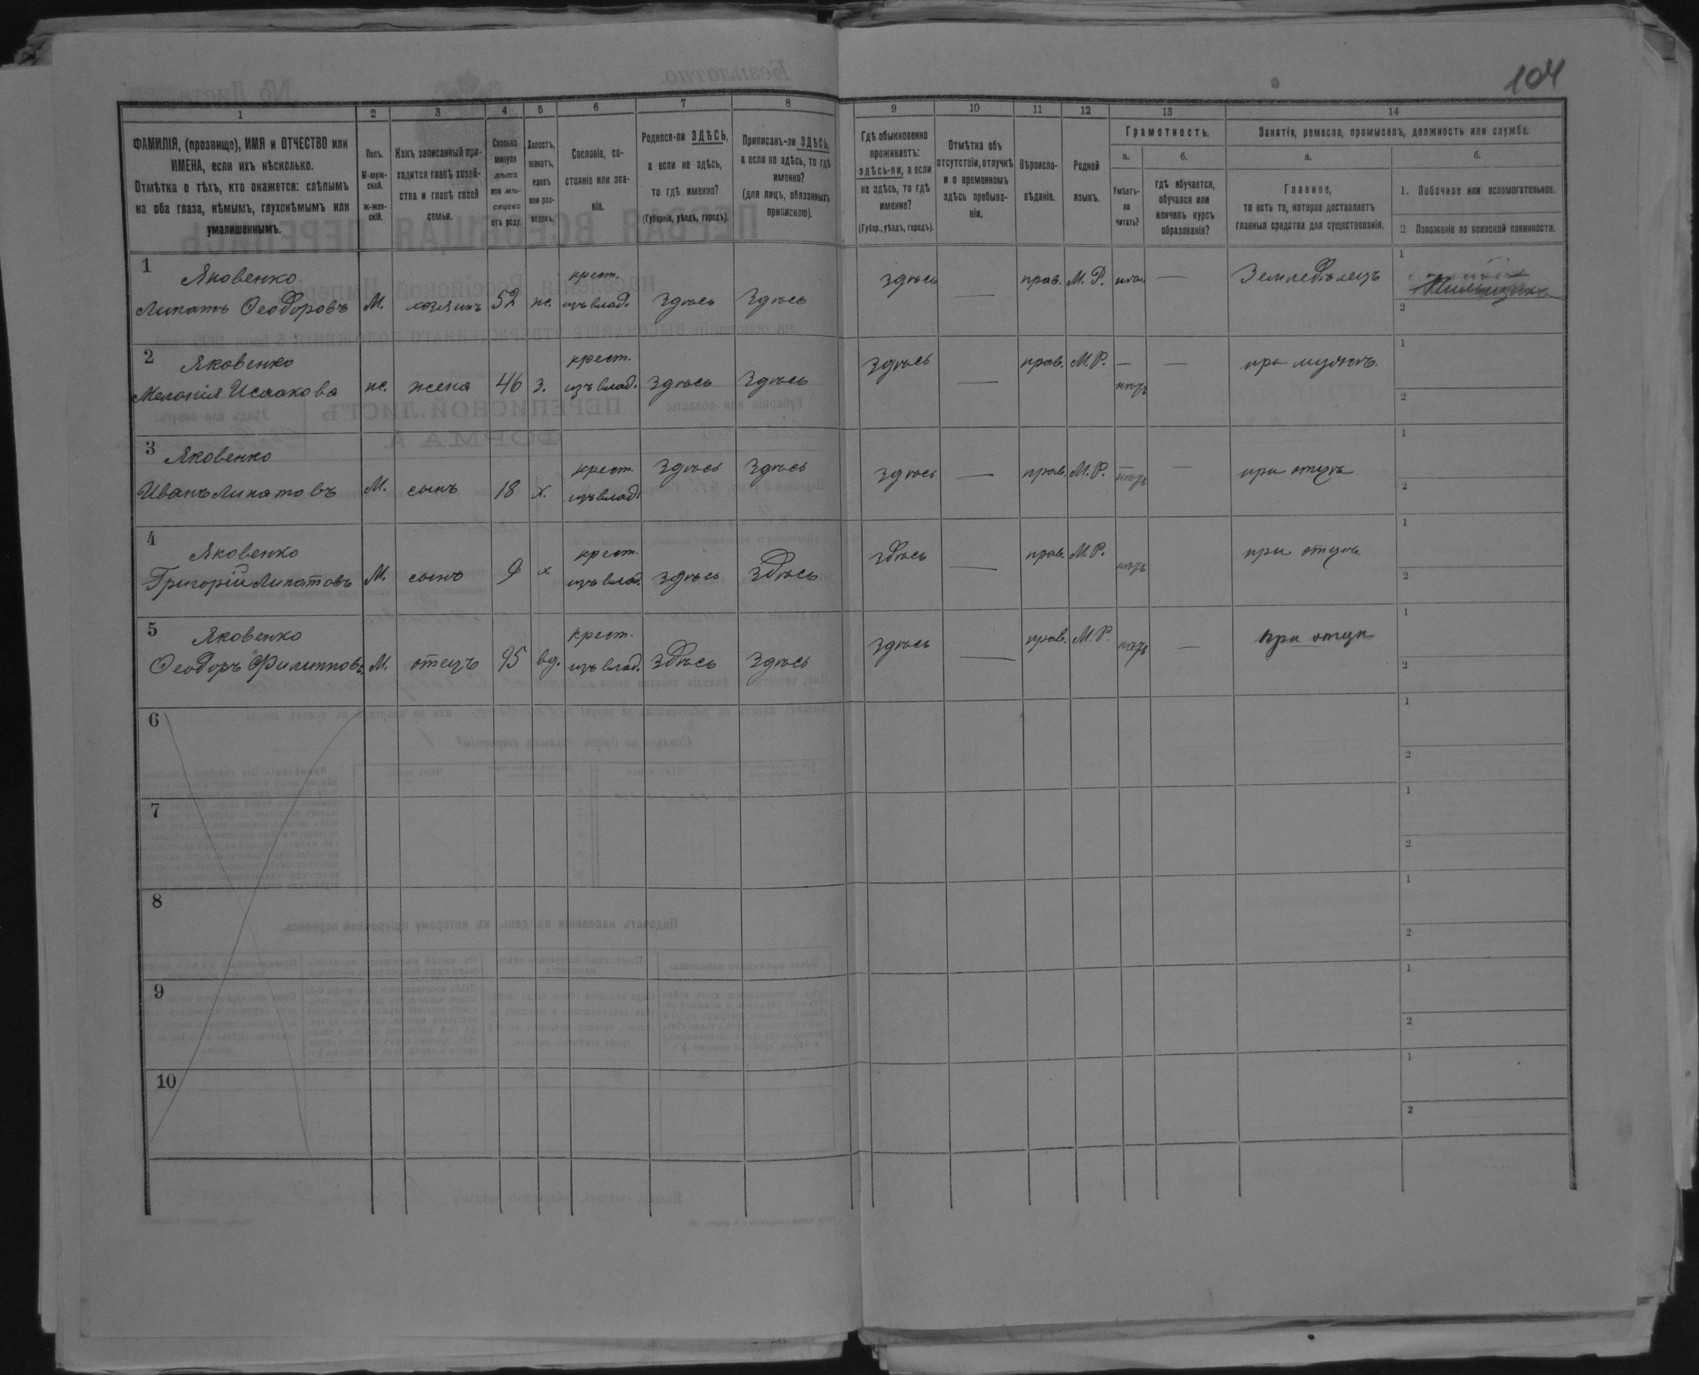 104
1
2
3
4
5
6
7
8
9
10
11
12
13
14
ФАМИЛІЯ, (прозвище), ИМЯ и ОТЧЕСТВО или
ИМЕНА, если ихъ нѣсколько.
Отмѣтка о тѣхъ, кто окажется: слѣпымъ
на оба глаза, нѣмымъ, глухонѣмымъ или
умалишеннымъ.
Полъ.
М-муж-
ской.
ж-жен-
скій.
Какъ записанный при-
ходится главѣ хозяй-
ства и главѣ своей
семьи.
Сколько
минуло
лѣтъ
или мѣ-
сяцевъ
отъ роду.
Холостъ,
женатъ,
вдовъ
или раз-
веденъ.
Сословіе, со-
стояніе или зва-
ніе.
Родился-ли ЗДѢСЬ,
а если не здѣсь,
то гдѣ именно?
(Губернія, уѣздъ, городъ).
Приписанъ-ли ЗДѢСЬ,
а если не здѣсь, то гдѣ
именно?
(для лицъ, обязанныхъ
припискою).
Гдѣ обыкновенно
проживаетъ:
здѣсь-ли, а если
не здѣсь, то гдѣ
именно?
(Губер., уѣздъ, городъ).
Отмѣтка объ
отсутствіи, отлучкѣ
и о временномъ
здѣсь пребыва-
ніи.
Вѣроиспо-
вѣданіе.
Родной
языкъ.
Грамотность.
а.
Умѣетъ-
ли
читать?
б.
гдѣ обучается,
обучался или
кончилъ курсъ
образованія?
Занятіе, ремесло, промыселъ, должность или служба.
а.
Главное,
то есть то, которое доставляетъ
главныя средства для существованія.
б.
1. Побочное или вспомогательное.
2 Положеніе по воинской повинности.
1 Яковенко
Липатъ Ѳеодоровъ М. хозяинъ 52 ж. крест. изъ влад. здѣсь здѣсь здѣсь — прав. М.Р. — Земледѣлецъ 1
2
2 Яковенко
Меланія Исаакова ж. жена 46 з. крест. изъ влад. здѣсь здѣсь здѣсь — прав. М.Р. — при мужѣ. 1
2
3 Яковенко
Иванъ Липатовъ М. сынъ 18 х. крест. изъ влад. здѣсь здѣсь здѣсь — прав. М.Р. — при отцѣ 1
2
4 Яковенко
Григорій Липатовъ М. сынъ 9 х крест. изъ влад. здѣсь здѣсь здѣсь — прав. М.Р. при отцѣ 1
2
5 Яковенко
Ѳеодоръ Филипповъ М. отецъ 95 вд. крест. изъ влад. здѣсь здѣсь здѣсь — прав. М.Р. — 1
2
6 1
2
7 1
2
8 1
2
9 1
2
10 1
2